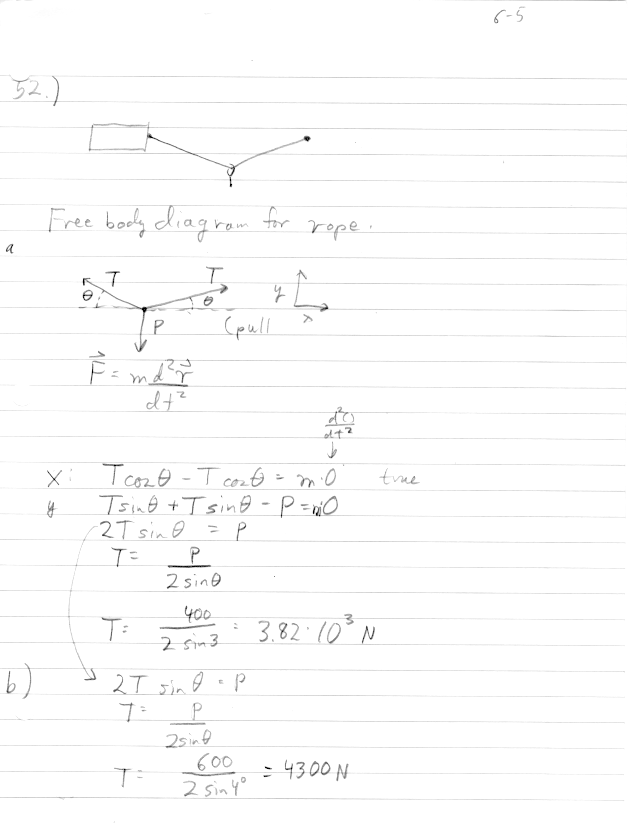 6-5
52.)
Free body diagram for rope.
a
T T
θ θ y
x
P (pull
F⃗ = m d²r⃗/dt²
d²()/dt²
↓
x: Tcosθ - Tcosθ = m·0 true
y Tsinθ + Tsinθ - P = m·0
2T sinθ = P
T = P/2 sinθ
T = 400/2 sin3 = 3.82·10³ N
b) 2T sinθ = P
T = P/2sinθ
T = 600/2 sin4° = 4300 N